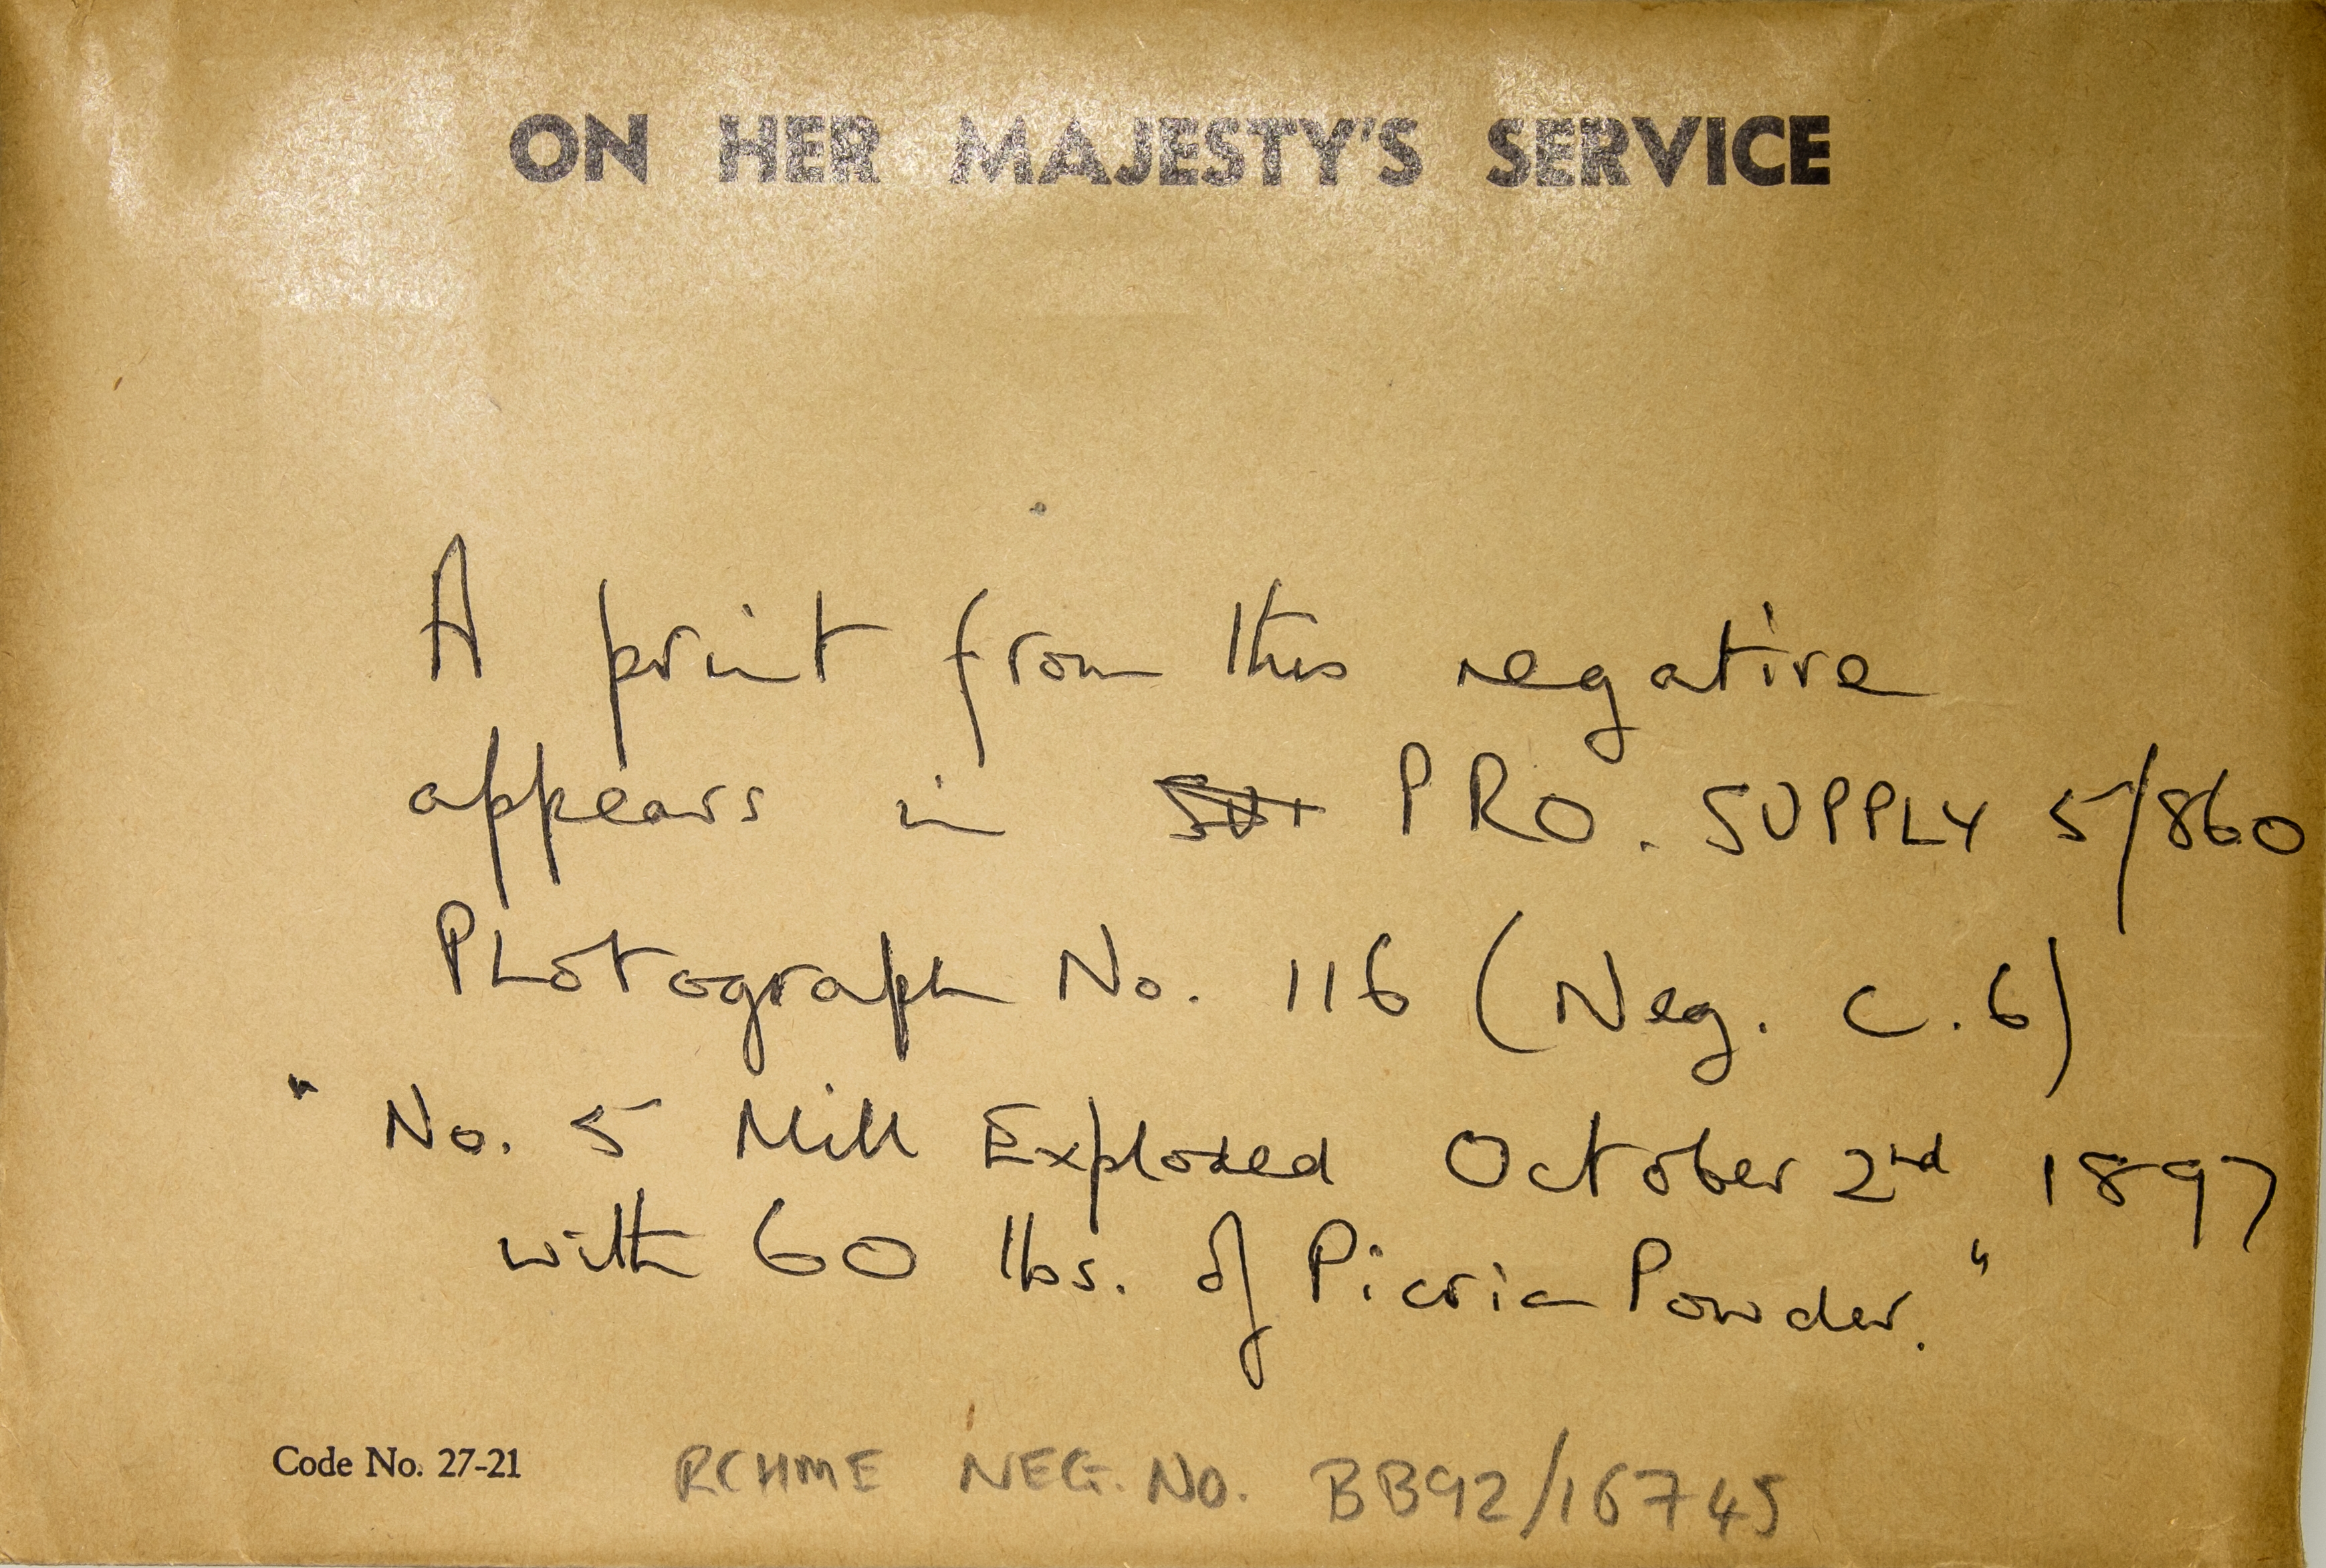 ON HER MAJESTY'S SERVICE
A print from this negative
appears in PRO. SUPPLY 5/860
Photograph No. 116 (Neg. C.6)
" No. 5 Mill Exploded October 2nd 1897
with 60 lbs. of Picric Powder."
Code No. 27-21 RCHME NEG. NO. BB92/16745